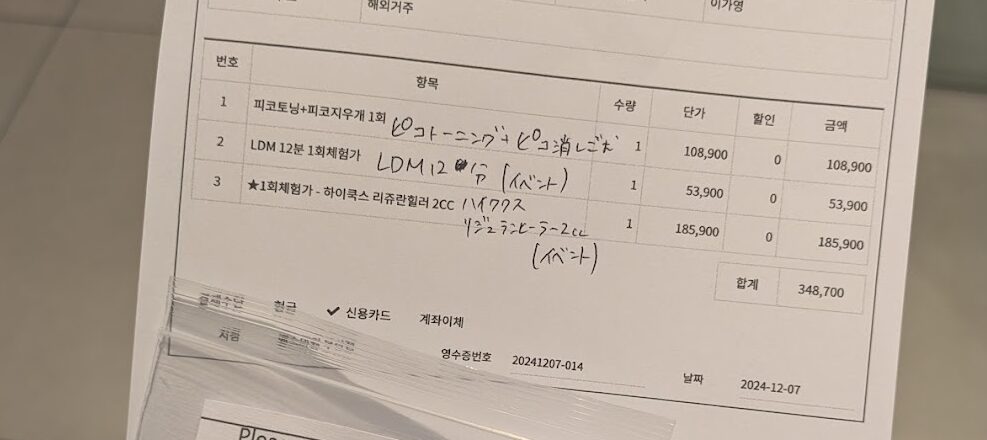 해외거주 이가영
번호 항목 수량 단가 할인 금액
1 피코토닝+피코지우개 1회 ピコトーニング+ピコ消しゴム 1 108,900 0 108,900
2 LDM 12분 1회체험가 LDM12分 (イベント) 1 53,900 0 53,900
3 ★1회체험가 - 하이쿡스 리쥬란힐러 2CC ハイククス 1 185,900 0 185,900
リジュランヒーラー2cc
(イベント)
합계 348,700
현금 ✓ 신용카드 계좌이체
영수증번호 20241207-014 날짜 2024-12-07